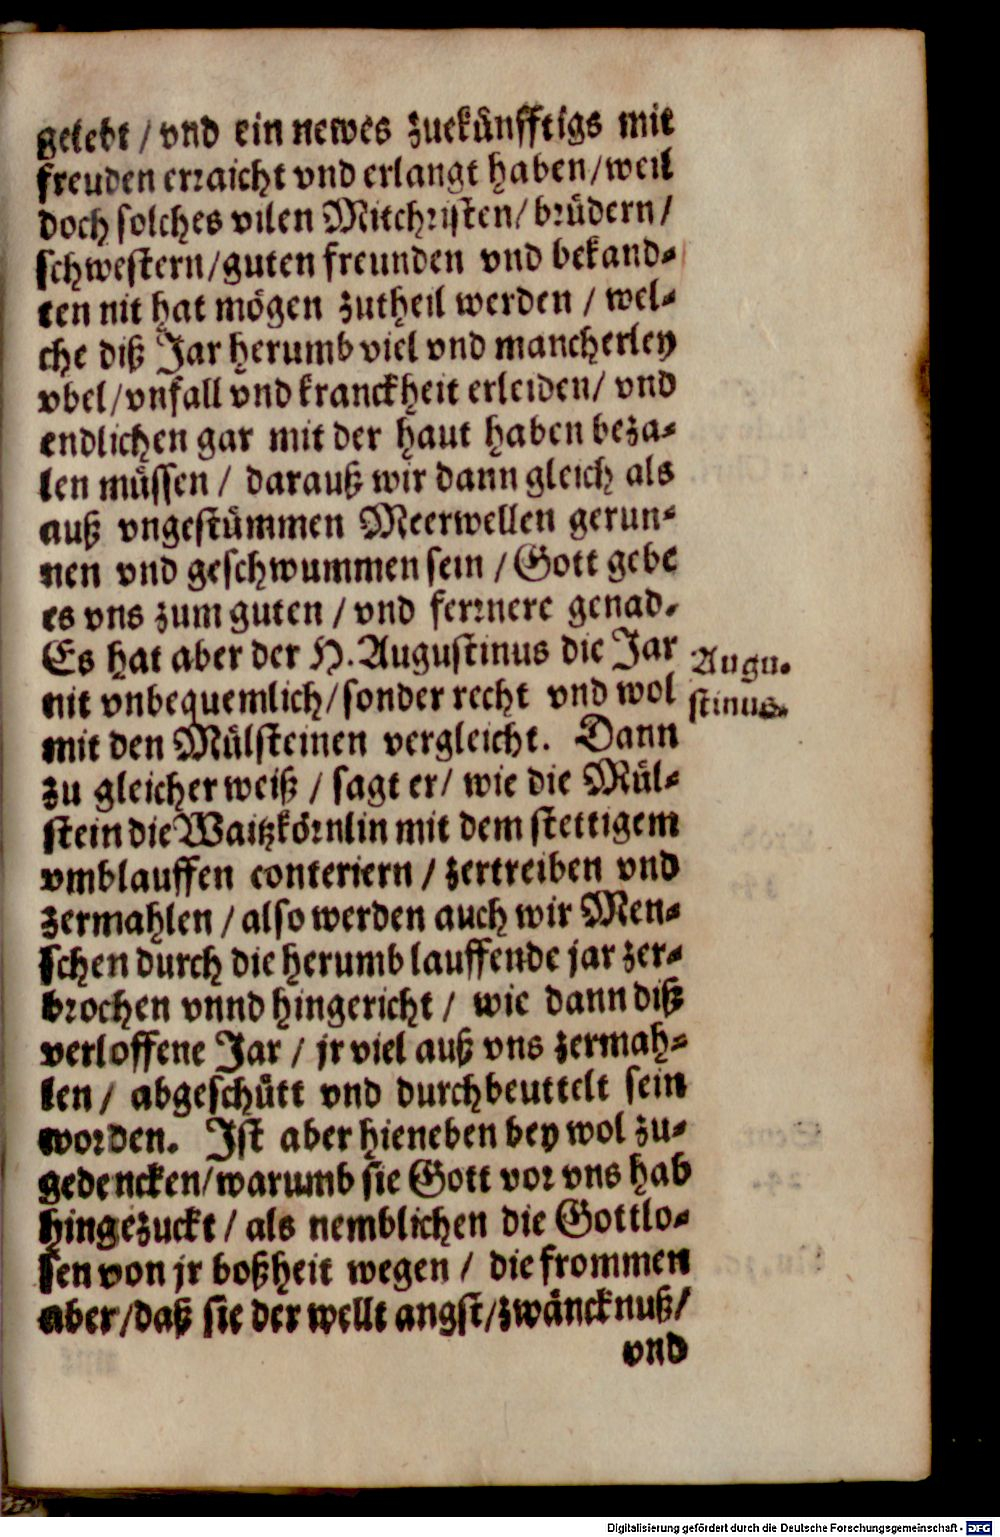 gelebt / vnd ein newes zuekünfftigs mit
freuden erraicht vnd erlangt haben / weil
doch solches vilen Mitchristen / brüdern /
schwestern / guten freunden vnd bekand-
ten nit hat mögen zutheil werden / wel-
che diß Jar herumb viel vnd mancherley
vbel / vnfall vnd kranckheit erleiden / vnd
endlichen gar mit der haut haben beza-
len müssen / darauß wir dann gleich als
auß vngestümmen Meerwellen gerun-
nen vnd geschwummen sein / Gott gebe
es vns zum guten / vnd fernere genad.
Es hat aber der H. Augustinus die Jar
nit vnbequemlich / sonder recht vnd wol
mit den Mülsteinen vergleicht. Dann
zu gleicher weiß / sagt er / wie die Mül-
stein die Waitzkörnlin mit dem stettigem
vmblauffen conteriern / zertreiben vnd
zermahlen / also werden auch wir Men-
schen durch die herumb lauffende jar zer-
brochen vnnd hingericht / wie dann diß
verloffene Jar / jr viel auß vns zermah-
len / abgeschütt vnd durchbeuttelt sein
worden. Ist aber hieneben bey wol zu-
gedencken / warumb sie Gott vor vns hab
hingezuckt / als nemblichen die Gottlo-
sen von jr boßheit wegen / die frommen
aber / daß sie der wellt angst / zwäncknuß /
vnd
Augu-
stinus.
Digitalisierung gefördert durch die Deutsche Forschungsgemeinschaft - DFG